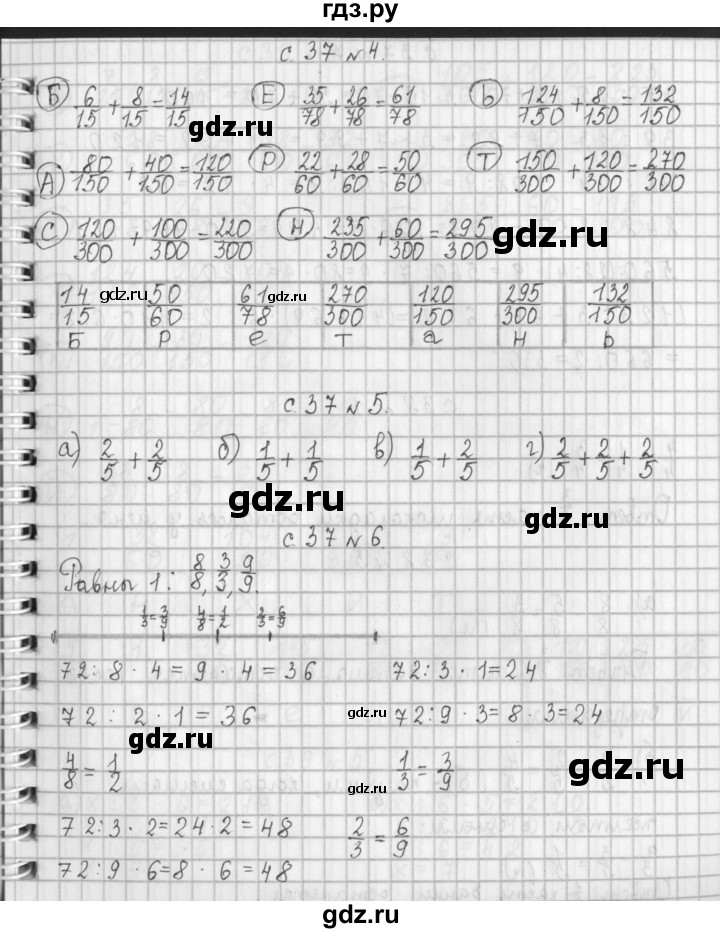 гдз.ру
с. 37 №4.
Б 6/15 + 8/15 = 14/15 Е 35/78 + 26/78 = 61/78 Ь 124/150 + 8/150 = 132/150
gdz.ru
А 80/150 + 40/150 = 120/150 Р 22/60 + 28/60 = 50/60 Т 150/300 + 120/300 = 270/300
С 120/300 + 100/300 = 220/300 Н 235/300 + 60/300 = 295/300
gdz.ru
14/15 50/60 61/78 270/300 120/150 295/300 132/150
gdz.ru gdz.ru
Б Р е Т а Н Ь
с. 37 №5.
а) 2/5 + 2/5 б) 1/5 + 1/5 в) 1/5 + 2/5 г) 2/5 + 2/5 + 2/5
gdz.ru gdz.ru
с. 37 №6.
Равны 1: 8/8, 3/3, 9/9.
1/3 = 3/9 4/8 = 1/2 2/3 = 6/9
72 : 8 · 4 = 9 · 4 = 36 72 : 3 · 1 = 24
72 : 2 · 1 = 36 72 : 9 · 3 = 8 · 3 = 24
gdz.ru gdz.ru
4/8 = 1/2 1/3 = 3/9
gdz.ru gdz.ru
72 : 3 · 2 = 24 · 2 = 48 2/3 = 6/9
72 : 9 · 6 = 8 · 6 = 48
gdz.ru